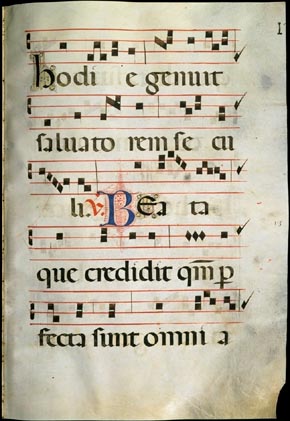 hodi e genuit
saluato rem se cu
li. v. BEa ta
que credidit qm̄ p
fecta sunt omni a